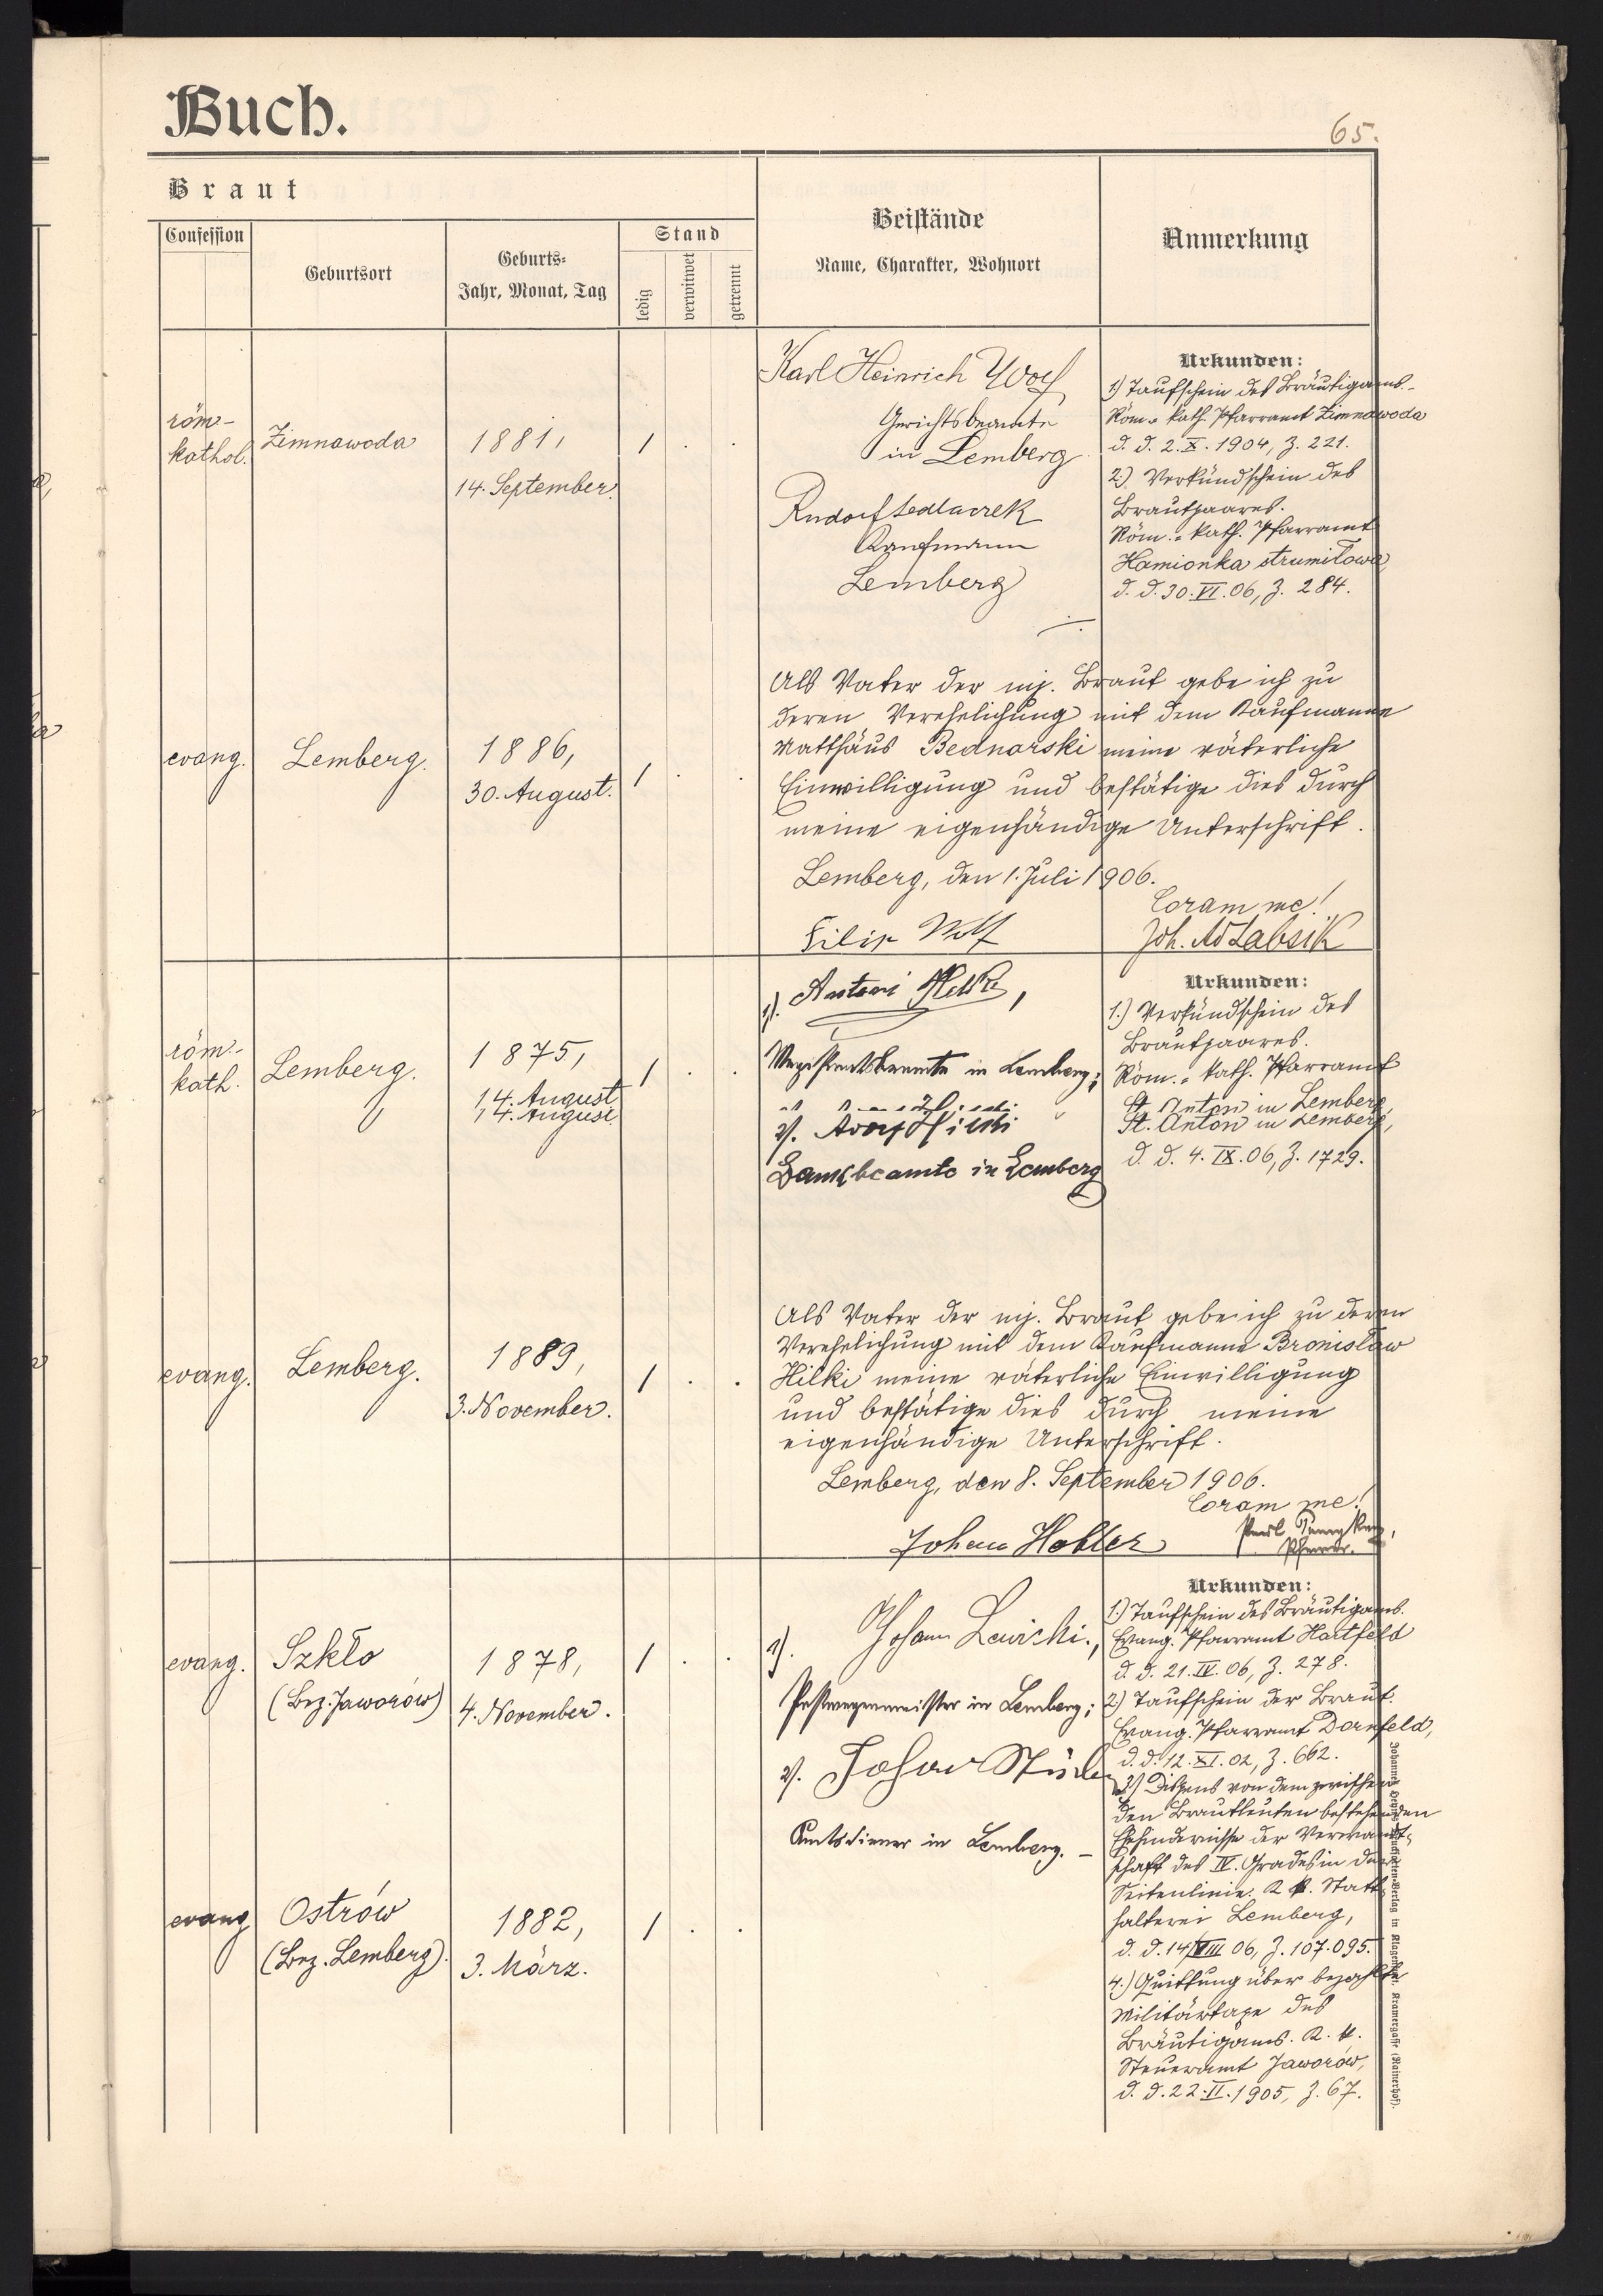 Buch.
65.
Braut
Confession
Geburtsort
Geburts-
Jahr, Monat, Tag
Stand
ledig
verwitwet
getrennt
Beistände
Name, Charakter, Wohnort
Anmerkung
röm-
kathol.
Zimnawoda
1881,
14. September.
1 . .
Karl Heinrich Wolf
Gerichtsbeamte
in Lemberg
Rudolf Sedlaczek
Kaufmann
Lemberg
Urkunden:
1) Taufschein des Bräutigams.
Röm.-kath. Pfarramt Zimnawoda
d. d. 2. X. 1904, Z. 221.
2.) Verkündschein des
Brautpaares.
Röm.-kath. Pfarramt
Kamionka strumiłowa,
d. d. 30. VI. 06, Z. 284.
evang.
Lemberg.
1886,
30. August.
1 . .
Als Vater der mj. Braut gebe ich zu
deren Verehelichung mit dem Kaufmanne
Matthäus Bednarski meine väterliche
Einwilligung und bestätige dies durch
meine eigenhändige Unterschrift.
Lemberg, den 1. Juli 1906.
Coram me!
Filip Wolf
Joh.
röm.-
kath.
Lemberg.
1875,
14. August
14. August
1 . .
1). Antoni Hilki,
Magistratsbeamte in Lemberg;
2). Adolf Hilski
Bankbeamte in Lemberg
Urkunden:
1.) Verkündschein des
Brautpaares.
Röm.-kath. Pfarramt
St. Anton in Lemberg,
St. Anton in Lemberg,
d. d. 4. IX. 06, Z. 1729.
evang.
Lemberg.
1889,
3. November.
1 . .
Als Vater der mj. Braut gebe ich zu deren
Verehelichung mit dem Kaufmanne Bronisław
Hilki meine väterliche Einwilligung
und bestätige dies durch meine
eigenhändige Unterschrift.
Lemberg, den 8. September 1906.
Coram me!
Johann Hobler
Pfarrer.
evang.
Szkło
(Bez. Jaworów)
1878,
4. November.
1 . .
1). Johann Lewicki.,
Postwagenmeister in Lemberg;
2). Johann
Amtsdiener in Lemberg. –
Urkunden:
1.) Taufschein des Bräutigams.
Evang. Pfarramt Hartfeld
d. d. 21. IV. 06, Z. 278.
2.) Taufschein der Braut.
Evang. Pfarramt Dornfeld,
d. d. 12. XI. 02, Z. 662.
3.) Dispens von dem zwischen
den Brautleuten bestehenden
Ehehindernisse der Verwandt-
schaft des IV. Grades in der
Seitenlinie. K. k. Statt-
halterei Lemberg,
d. d. 14/VIII 06, Z. 107.095.
4.) Quittung über bezahlte
Militärtaxe des
Bräutigams. K. k.
Steueramt Jaworów,
d. d. 22. II. 1905, Z. 67.
evang
Ostrów
(Bez. Lemberg).
1882,
3. März.
1 . .